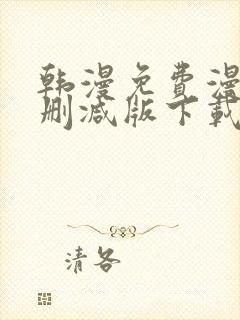 韩漫免费漫
删减版下载
清各